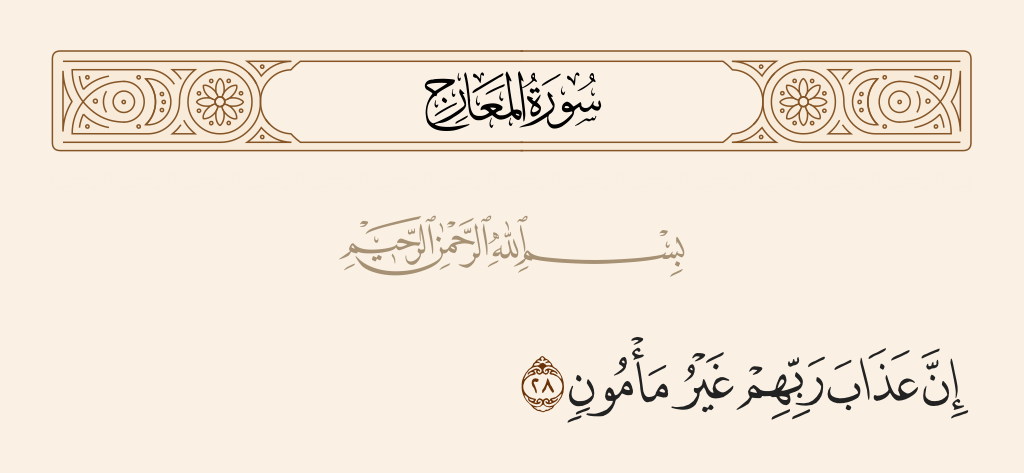 سُورَةُ المَعَارِجِ
بِسْمِ ٱللَّهِ ٱلرَّحْمَٰنِ ٱلرَّحِيمِ
إِنَّ عَذَابَ رَبِّهِمْ غَيْرُ مَأْمُونٍ ٢٨